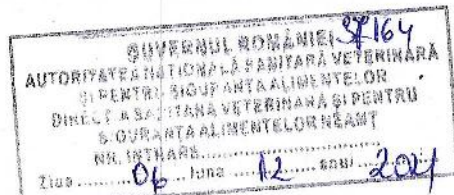 37164
GUVERNUL ROMÂNIEI
AUTORITATEA NAȚIONALĂ SANITARĂ VETERINARĂ
ȘI PENTRU SIGURANȚA ALIMENTELOR
DIRECȚIA SANITARĂ VETERINARĂ ȘI PENTRU
SIGURANȚA ALIMENTELOR NEAMȚ
NR. INTRARE
Ziua 06 luna 12 anul 2021